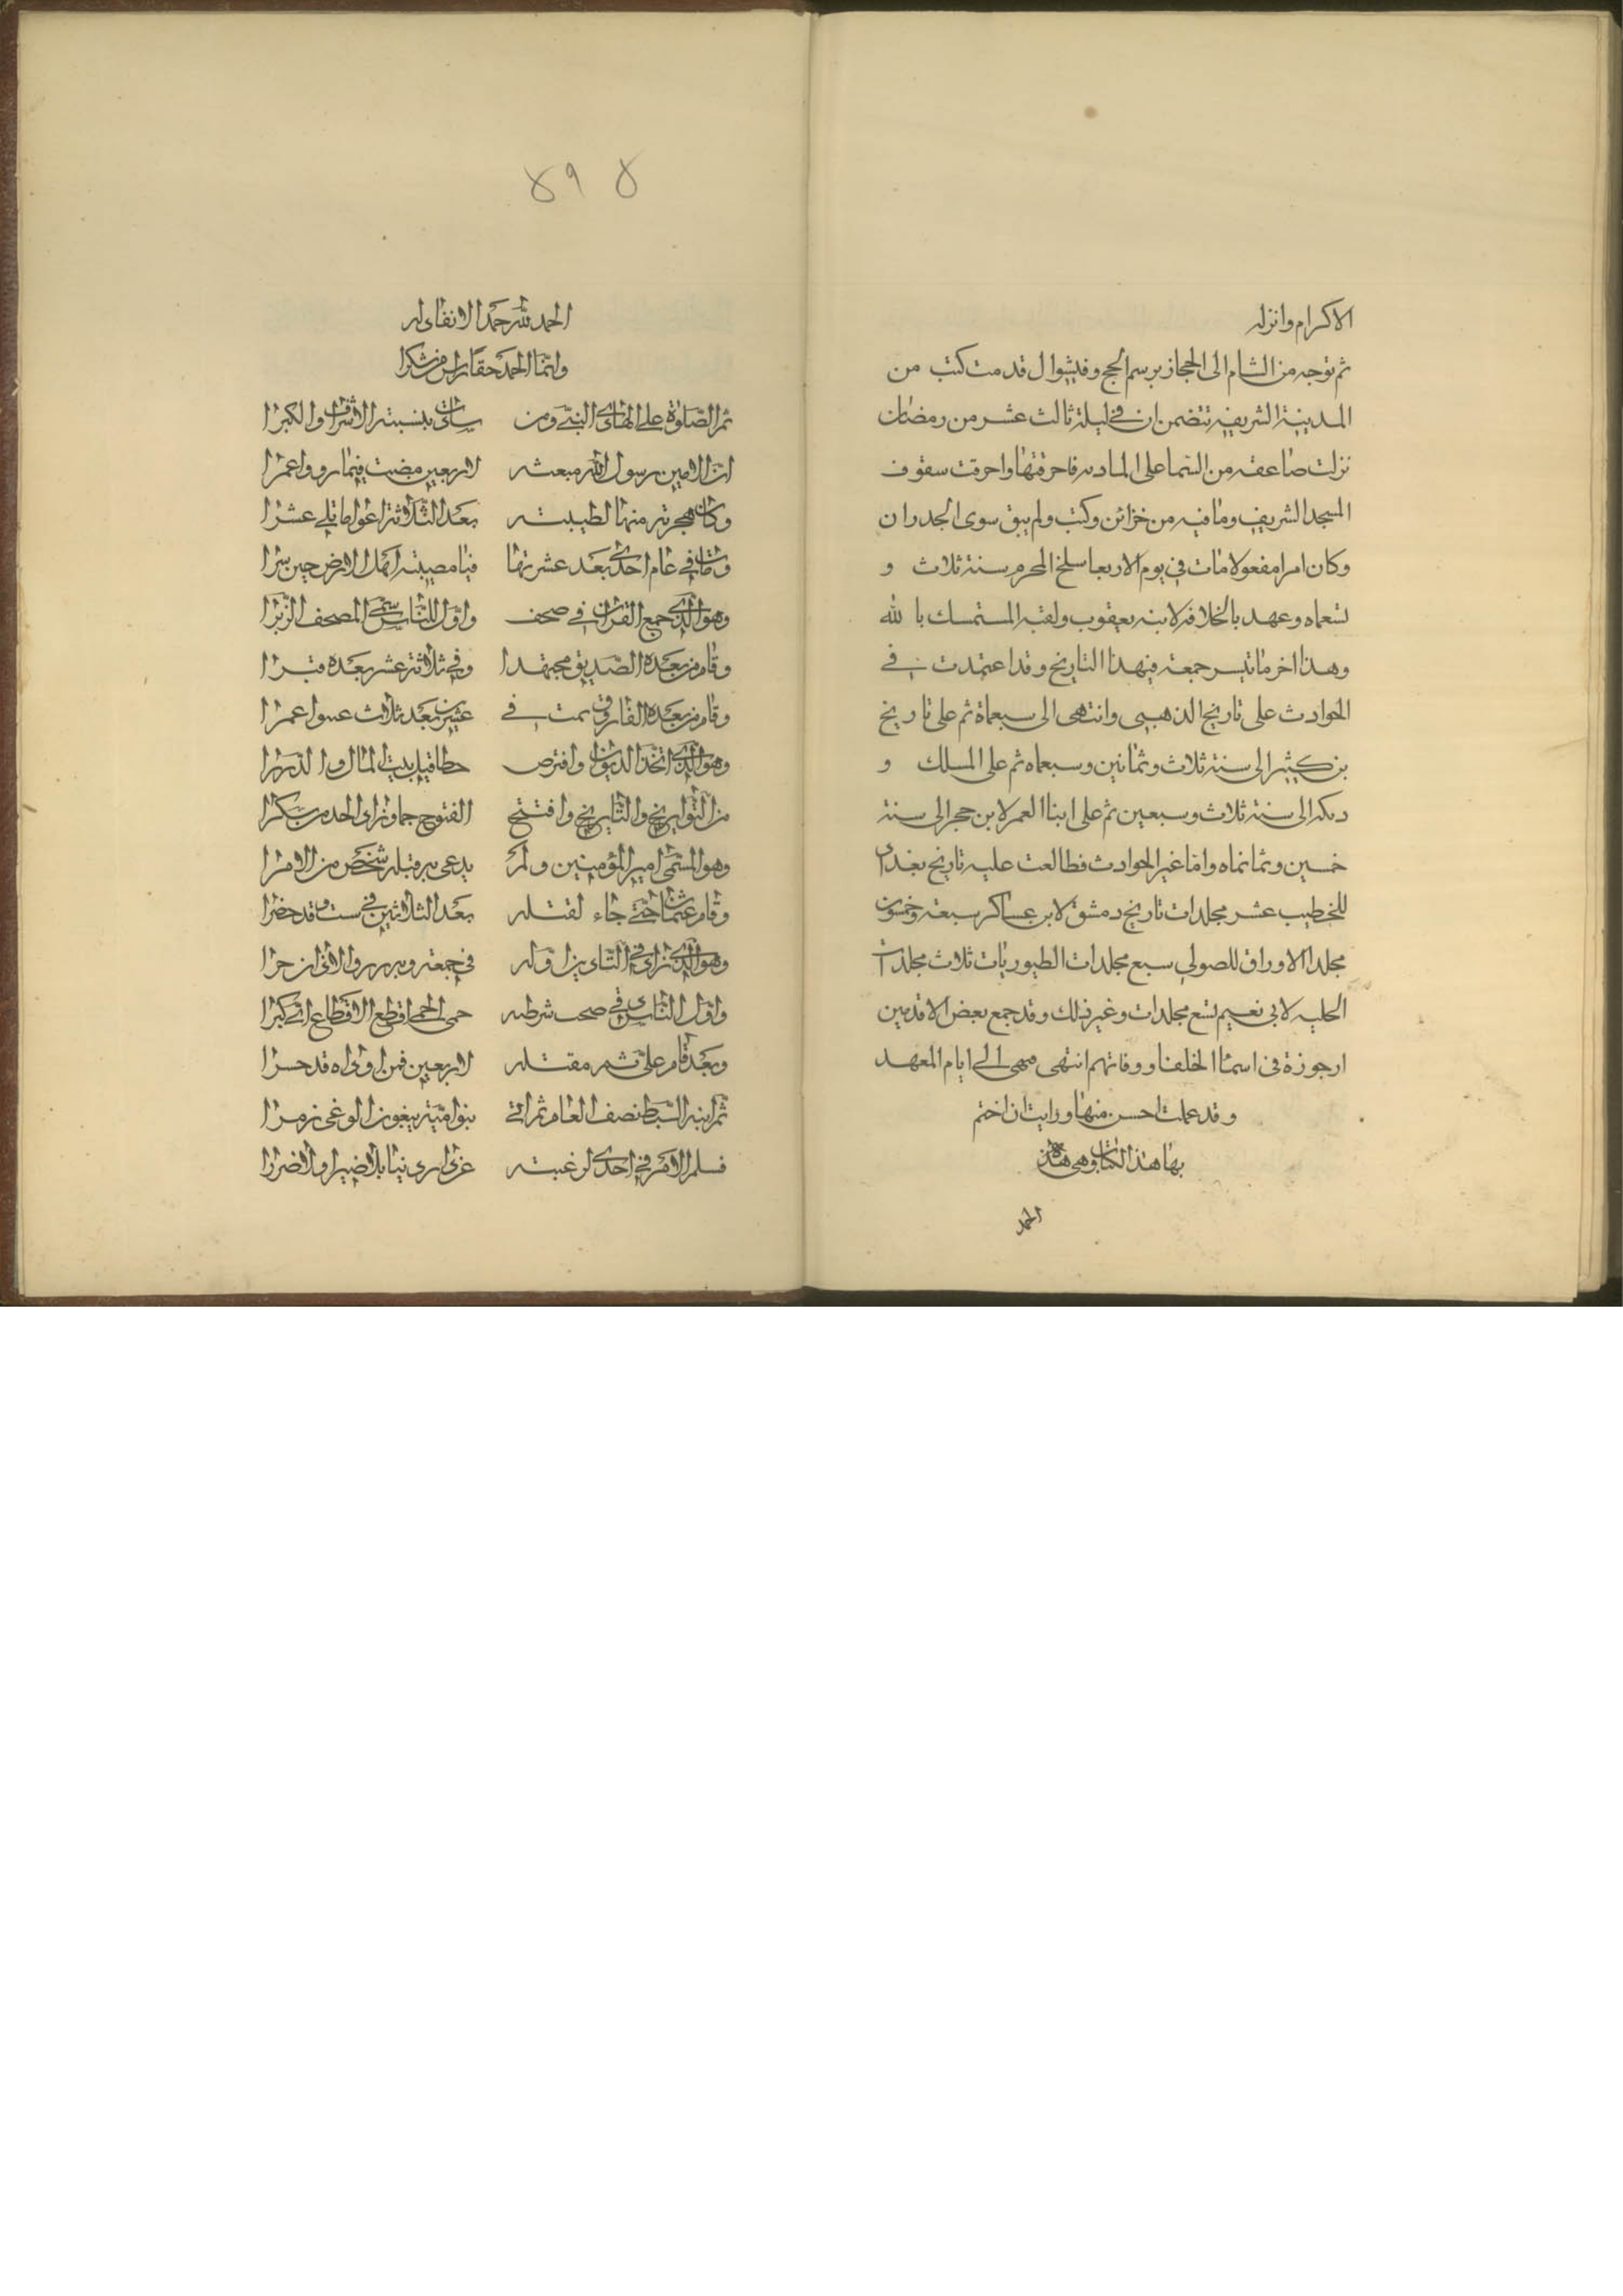 الاكرام وانزله
ثم توجه من الشام الى الحجاز برسم الحج وفي شوال قدمت كتب من
المدينة الشريفة تتضمن ان في ليلة ثالث عشر من رمضان
نزلت صاعقه من السما على المادنه فاحرقتها واحرقت سقوف
المسجد الشريف وما فيه من خزائن وكتب ولم يبق سوى الجدران
وكان امرا مفعولا مات في يوم الاربعا سلخ المحرم سنة ثلاث و
تسعماه وعهد بالخلافة لابنه يعقوب ولقبه المستمسك بالله
وهذا اخر ما تيسر جمعه في هذا التاريخ وقد اعتمدت في
الحوادث على تاريخ الذهبي وانتهى الى سبعماة ثم على تاريخ
بن كثير الى سنة ثلاث وثمانين وسبعماه ثم على المسلك و
الى سنة ثلاث وسبعين ثم على ابناا لعمر لابن حجر الى سنة
خمسين وثمانماه واما غير الحوادث فطالعت عليه تاريخ بغداد
للخطيب عشر مجلدات تاريخ دمشق لابن عساكر سبعة وخمسون
مجلدا الاوراق للصولي سبع مجلدات الطيوريات ثلاث مجلدات
الحليه لابي نعيم تسع مجلدات وغير ذلك وقد جمع بعض الاقدمين
ارجوزة في اسماا لخلفا ووفاتهم انتهى الى ايام المعهد
وقد عملت احسن منها ورايت ان اختم
بها هذا الكتاب وهي هذه
الحمد
٨٩ ٨
الحمد لله حمدا لا نفاد له
وانما الحمد حقا راس من شكرا
ثم الصلوة على الهادي النبي ومن سادت بنسبته الاشراف والكبرا
ان الامين رسول الله مبعثه لاربعين مضت فيما رووا عمرا
وكان هجرته منها لطيبته بعد الثلاثة اعواما تلي عشرا
ومات في عام احدى بعد عشرتها فيا مصيبة اهل الارض حين سرا
وهو الذي جمع القران في صحف واول الناس سمى المصحف الزبرا
وقام من بعده الصديق مجتهدا وفي ثلاثة عشر بعده قبرا
وقام من بعده الفاروق ثمت في عشرين بعد ثلاث عمرا
وهو الذي اتخذ الديوان وافترض قبل بيت المال والدررا
من التواريخ والتاريخ وافتتح الفتوح
وهو المسمى امير المؤمنين ولم يدعى به قبله شخص من الامرا
وقام عثمان حتى جاء لقتله بعد الثلاثين في ست وقد حضرا
وهو الذي زاد في التاذين اوله في جمعة
واول الناس في صحب شرطه حمى الحمى اقطع الاقطاع
وبعد قام علي ثم مقتله لاربعين فمن
ثم ابنه السبط نصف العام ثم اتى بنو امية يبغون الوغى زمرا
فسلم الامر في احدى لرغبته